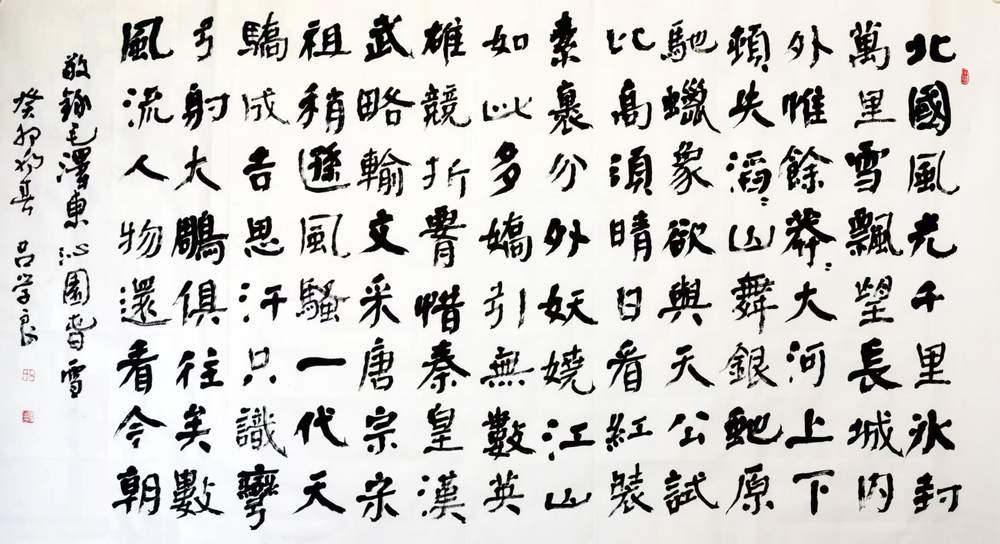 北國風光千里冰封
萬里雪飄望長城内
外惟餘莽〻大河上下
頓失滔〻山舞銀虵原
馳蠟象欲與天公試
比高須晴日看紅裝
素裹分外妖嬈江山
如此多嬌引無數英
雄競折腰惜秦皇漢
武略輸文采唐宗宋
祖稍遜風騷一代天
驕成吉思汗只識彎
弓射大鵰俱往矣數
風流人物還看今朝
敬錄毛澤東沁園春雪
癸卯初春 呂学良